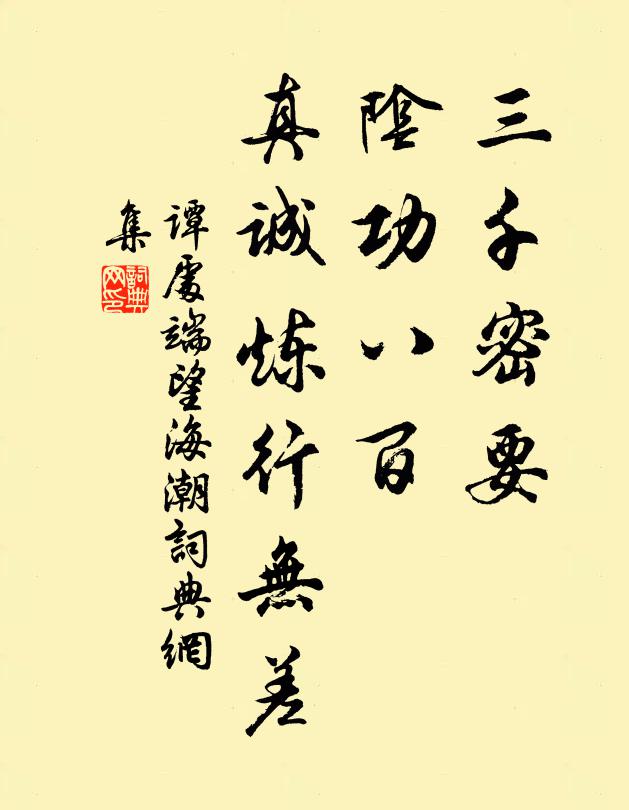 三千密要
陰功八百
真誠炼行無差
谭處端望海潮詞典網
集
詞典
网印